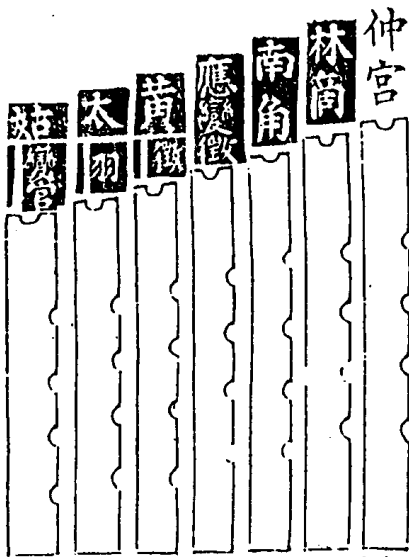 仲宮
林商
南角
應變徵
黃徵
太羽
姑變宮